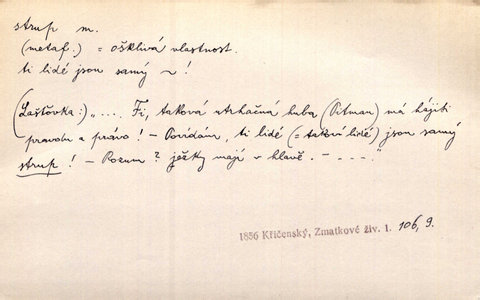 strup m.
(metaf.) = ošklivá vlastnost.
ti lidé jsou samý ~!
(Lašťovka:) „.... Fi, taková utrhačná huba (Pitman) má hájiti
pravdu a právo! – Povídám, ti lidé (= takoví lidé) jsou samý
strup! – Rozum? ježky mají v hlavě. – – – ..."
1856 Křičenský, Zmatkové živ. 1. 106, 9.